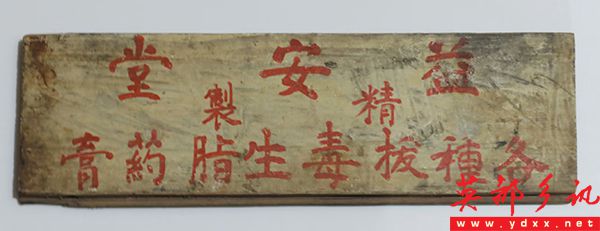 益安堂
精製
各種拔毒生脂葯膏
英都乡讯
www.ydxx.net